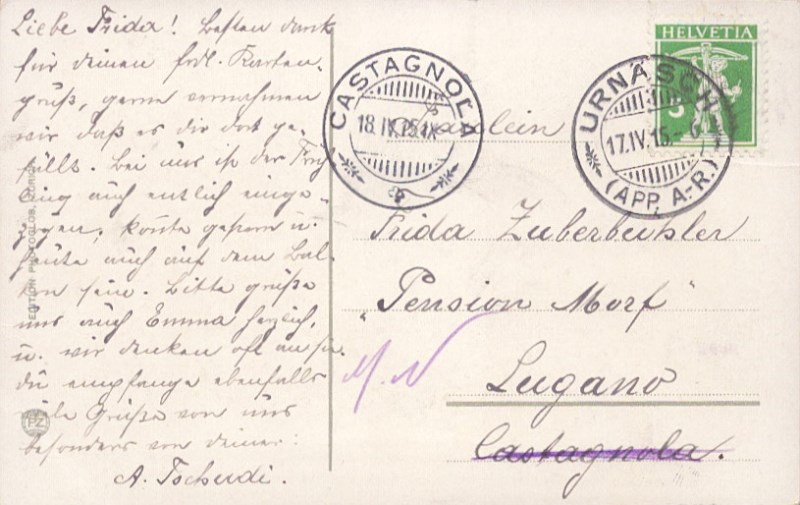 Liebe Frida! Besten Dank
für deinen frdl. Karten-
gruß, gerne vernahmen
wir daß es dir dort ge-
fällt. Bei uns ist der Früh
ling auch entlich einge-
zogen, konte gestern u.
heute auch auf dem Bal-
kon sein. Bitte grüße
uns auch Emma herzlich,
u. wir denken oft an sie.
du empfange ebenfalls
viele Grüße von uns
besonders von deiner:
A. Tscherdi.
EDITION PHOTOGLOB, ZÜRICH
PZ
CASTAGNOLA
18.IV.15.IX
HELVETIA
5
URNÄSCH
17.IV.15.
(APP. A.-R.)
Fräulein
Frida Zuberbühler
"Pension Morf"
M. N
Lugano
Castagnola.